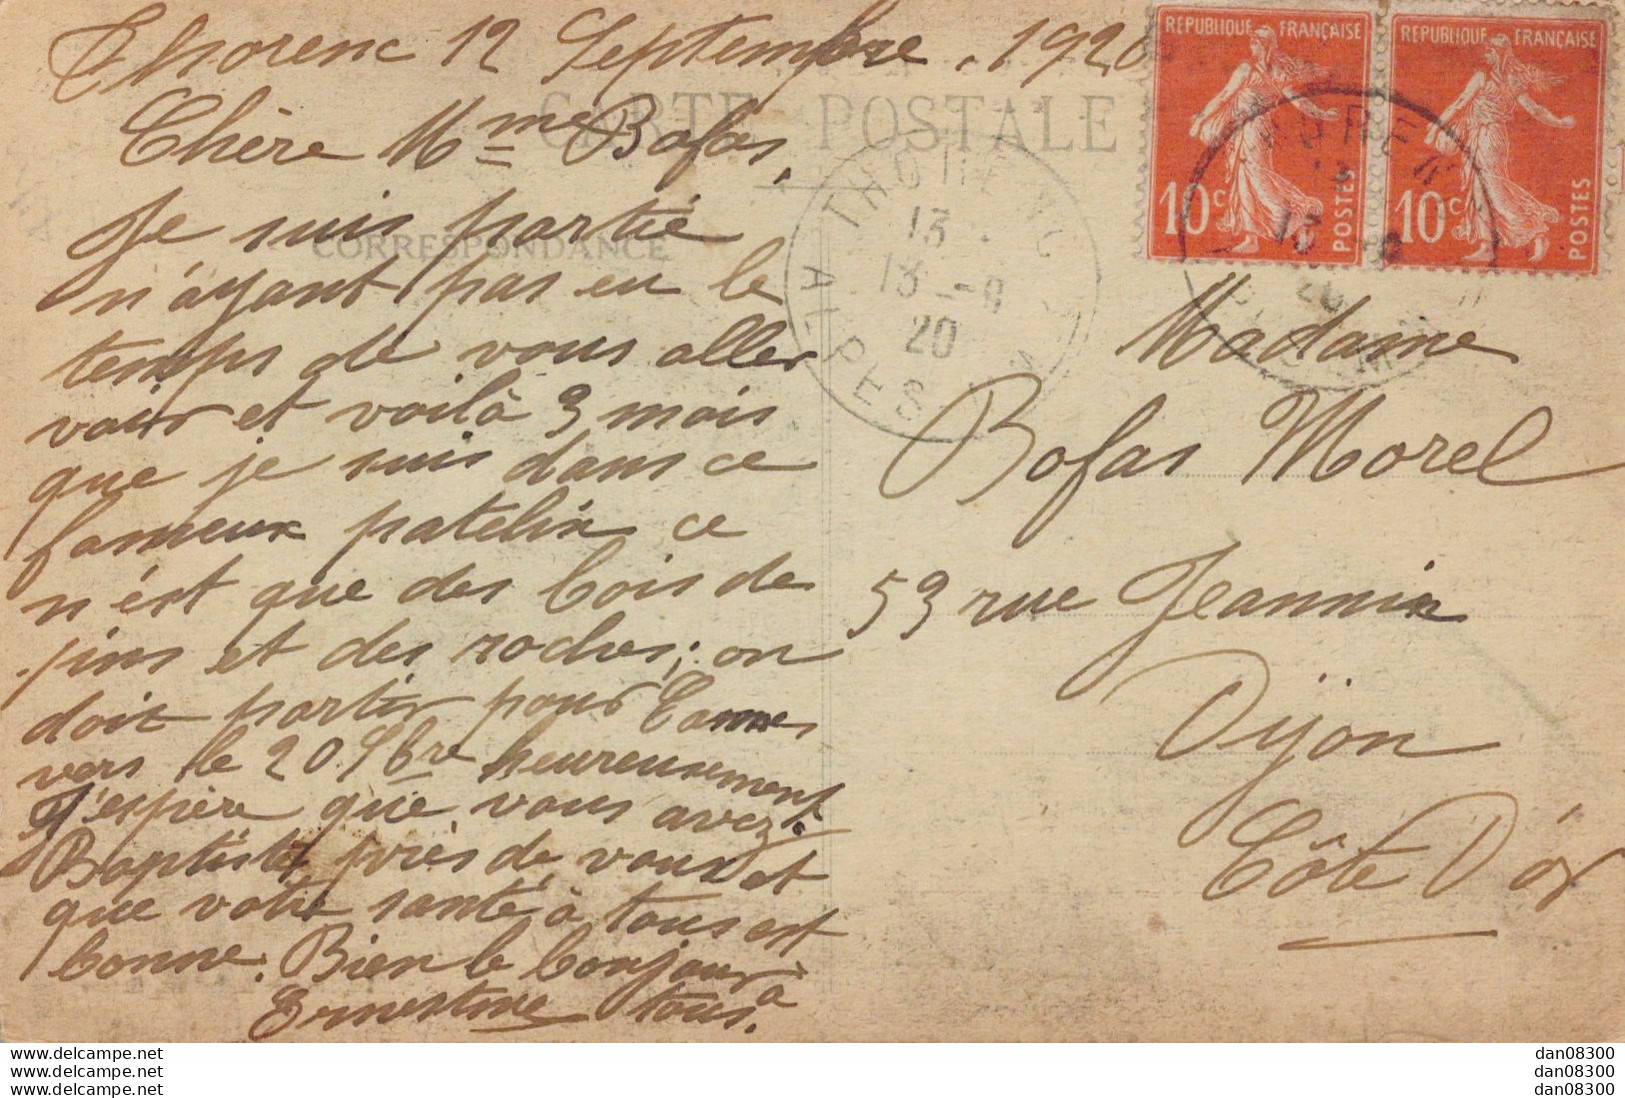 Thorenc 12 Septembre . 1920
CARTE POSTALE
Chère Mme Bofas,
CORRESPONDANCE
Je suis partie
n'ayant pas eu le
temps de vous aller
voir et voilà 3 mois
que je suis dans ce
fameux patelin ce
n'est que des bois de
pins et des roches; on
doit partir pour Cannes
vers le 20 7bre heureusement
J'espère que vous avez
Baptiste près de vous et
que votre santé à tous est
bonne. Bien le bonjour à
Ernestine tous.
RÉPUBLIQUE FRANÇAISE
10c POSTES
RÉPUBLIQUE FRANÇAISE
10c POSTES
THORENC
13
13 -9
20
ALPES
Madame
Bofas Morel
53 rue Jeannin
Dijon
Côte D'or
www.delcampe.net
www.delcampe.net
www.delcampe.net
dan08300
dan08300
dan08300